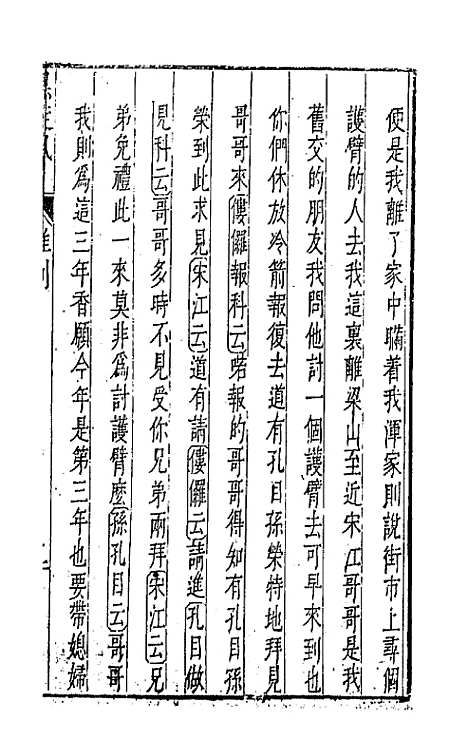 便是我離了家中瞞着我渾家則說街市上尋個
護臂的人去我這裏離梁山至近宋江哥哥是我
舊交的朋友我問他討一個護臂去可早來到也
你們休放冷箭報復去道有孔目孫榮特地拜見
哥哥來僂儸報科云喏報的哥哥得知有孔目孫
榮到此求見宋江云道有請僂儸云請進孔目做
見科云哥哥多時不見受你兄弟兩拜宋江云兄
弟免禮此一來莫非爲討護臂麽孫孔目云哥哥
我則爲這三年香願今年是第三年也要帶媳婦